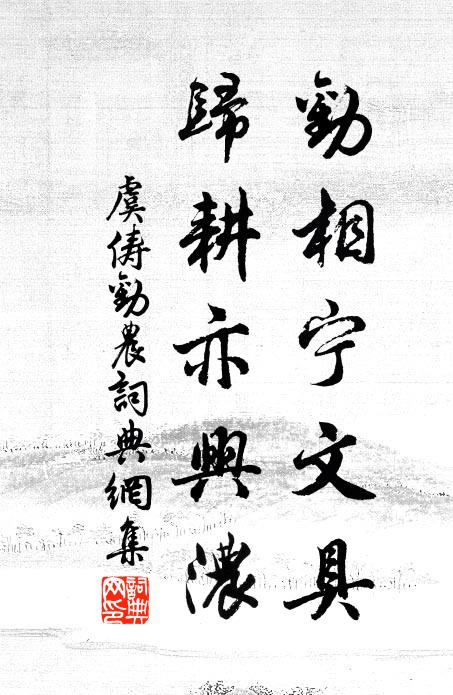 勸相宁文具
歸耕亦興濃
虞俦勸農詞典網集
詞典网印